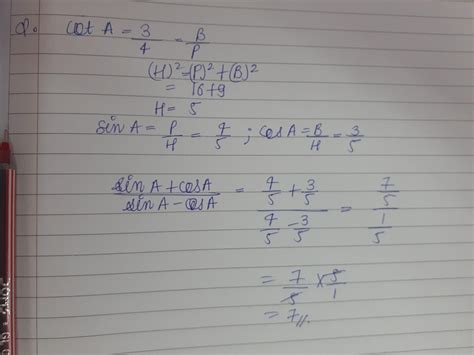 Q. cot A = 3/4 = B/P
(H)² = (P)² + (B)²
= 16+9
H = 5
sin A = P/H = 4/5 ; cos A = B/H = 3/5
sin A + cos A / sin A - cos A = 4/5 + 3/5 / 4/5 - 3/5 = 7/5 / 1/5
= 7/5 × 5/1
= 7//.